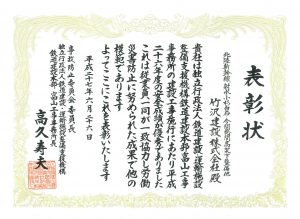 表彰状
竹沢建設株式会社殿
貴社は独立行政法人鉄道建設・運輸施設
整備支援機構鉄道建設本部富山工事
事務所の建設工事施行にあたり平成
二十六年度の安全成績が優秀でありました
これは従業員一同が一致協力し労働
災害防止に努められた成果で他の
模範であります
よってここにこれを表彰いたします
平成二十七年六月二十六日
事故防止委員会委員長
独立行政法人鉄道建設・運輸施設整備支援機構
鉄道建設本部富山工事事務所長
高久寿夫